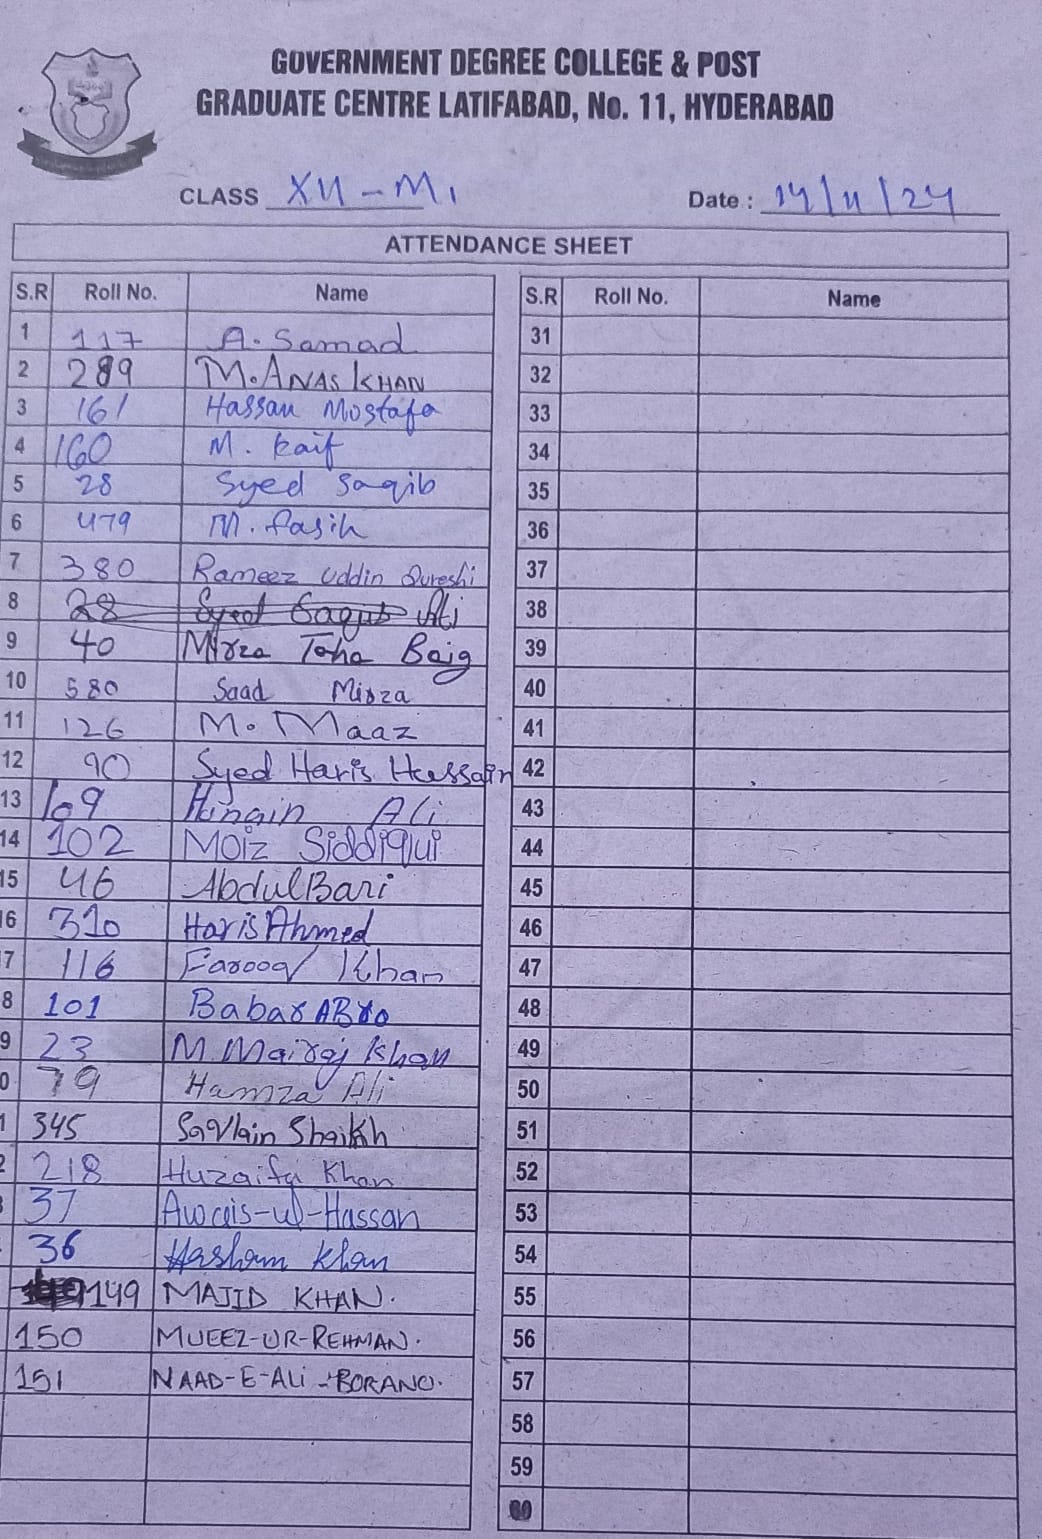 GOVERNMENT DEGREE COLLEGE & POST
GRADUATE CENTRE LATIFABAD, No. 11, HYDERABAD
CLASS XII-M1 Date : 14/11/24
ATTENDANCE SHEET
S.R Roll No. Name
1 117 A. Samad
2 289 M. ANAS KHAN
3 161 Hassan Mostafa
4 160 M. Kaif
5 28 Syed Saqib
6 479 M. fasih
7 380 Rameez Uddin Qureshi
8 28 Syed Saqub Ali
9 40 Mirza Taha Baig
10 580 Saad Mirza
11 126 M. Maaz
12 90 Syed Haris Hussain
13 109 Hinain Ali
14 102 Moiz Siddiqui
15 46 Abdul Bari
16 310 Haris Ahmed
7 116 Farooq Khan
8 101 Babar ABro
9 23 M. Mairaj Khan
0 79 Hamza Ali
1 345 Saqlain Shaikh
2 218 Huzaifa Khan
37 Awais-ul-Hassan
36 Hasham Khan
149 MAJID KHAN.
150 MUEEZ-UR-REHMAN.
151 NAAD-E-ALI-BORANO.
S.R Roll No. Name
31
32
33
34
35
36
37
38
39
40
41
42
43
44
45
46
47
48
49
50
51
52
53
54
55
56
57
58
59
60